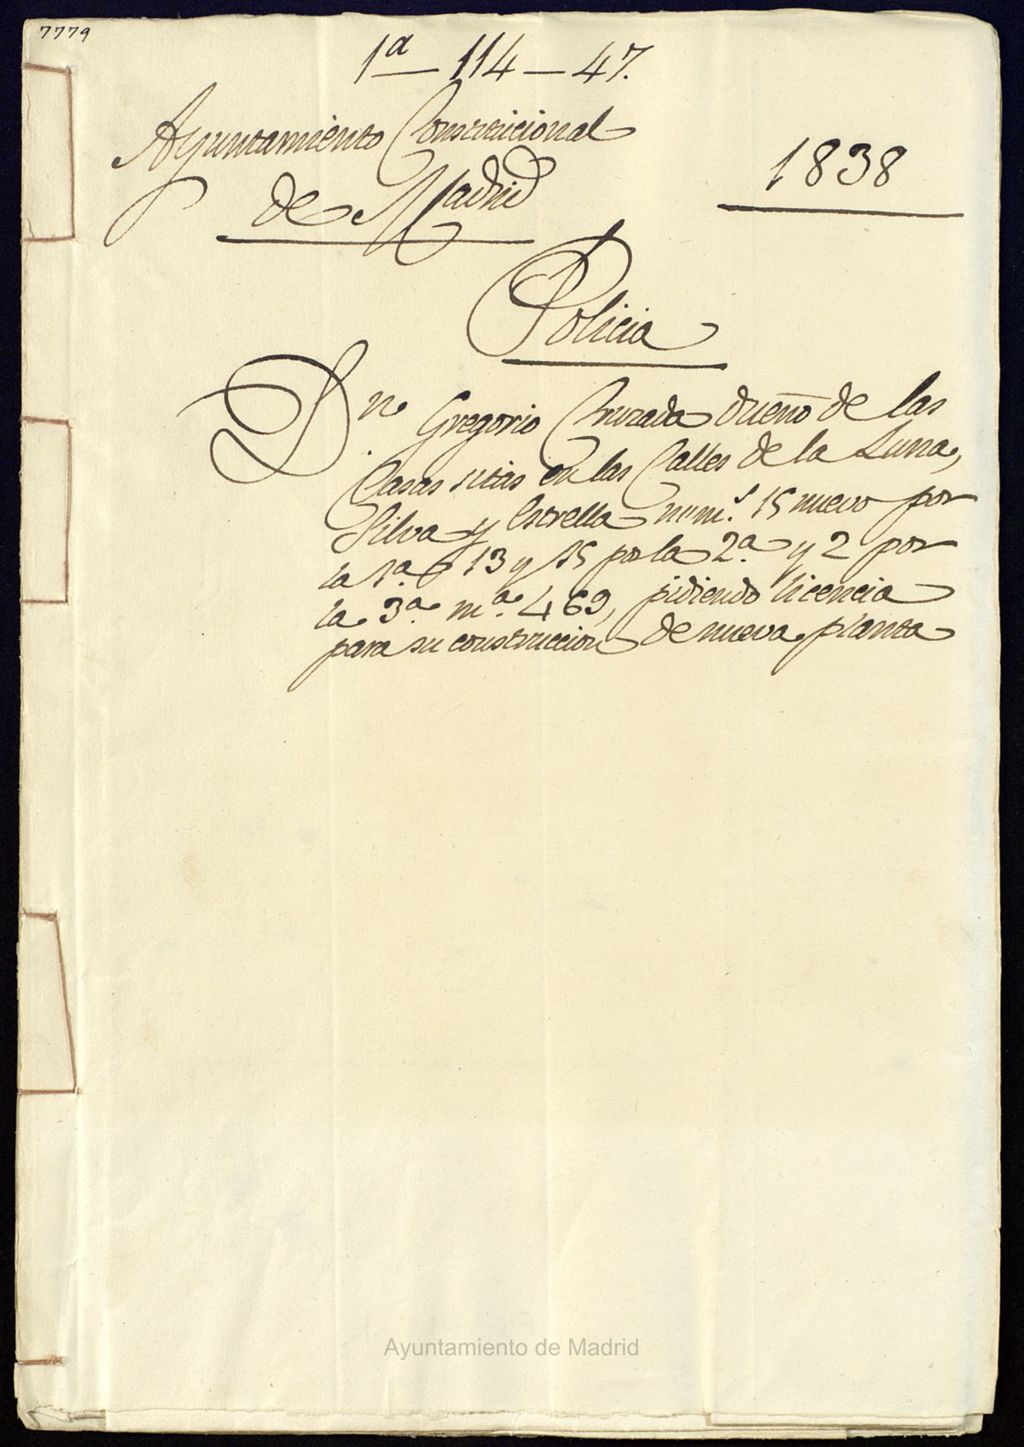 7779
1ª - 114 - 47.
Ayuntamiento Constitucional
de Madrid
1838
Policia
Dn. Gregorio Cruzada dueño de las
Casas sitas en las Calles de la Luna,
Silva y Estrella num.s 15 nuevo por
la 1.ª 13 y 15 por la 2.ª y 2 por
la 3.ª m.ª 469, pidiendo licencia
para su construccion de nueva planta
Ayuntamiento de Madrid